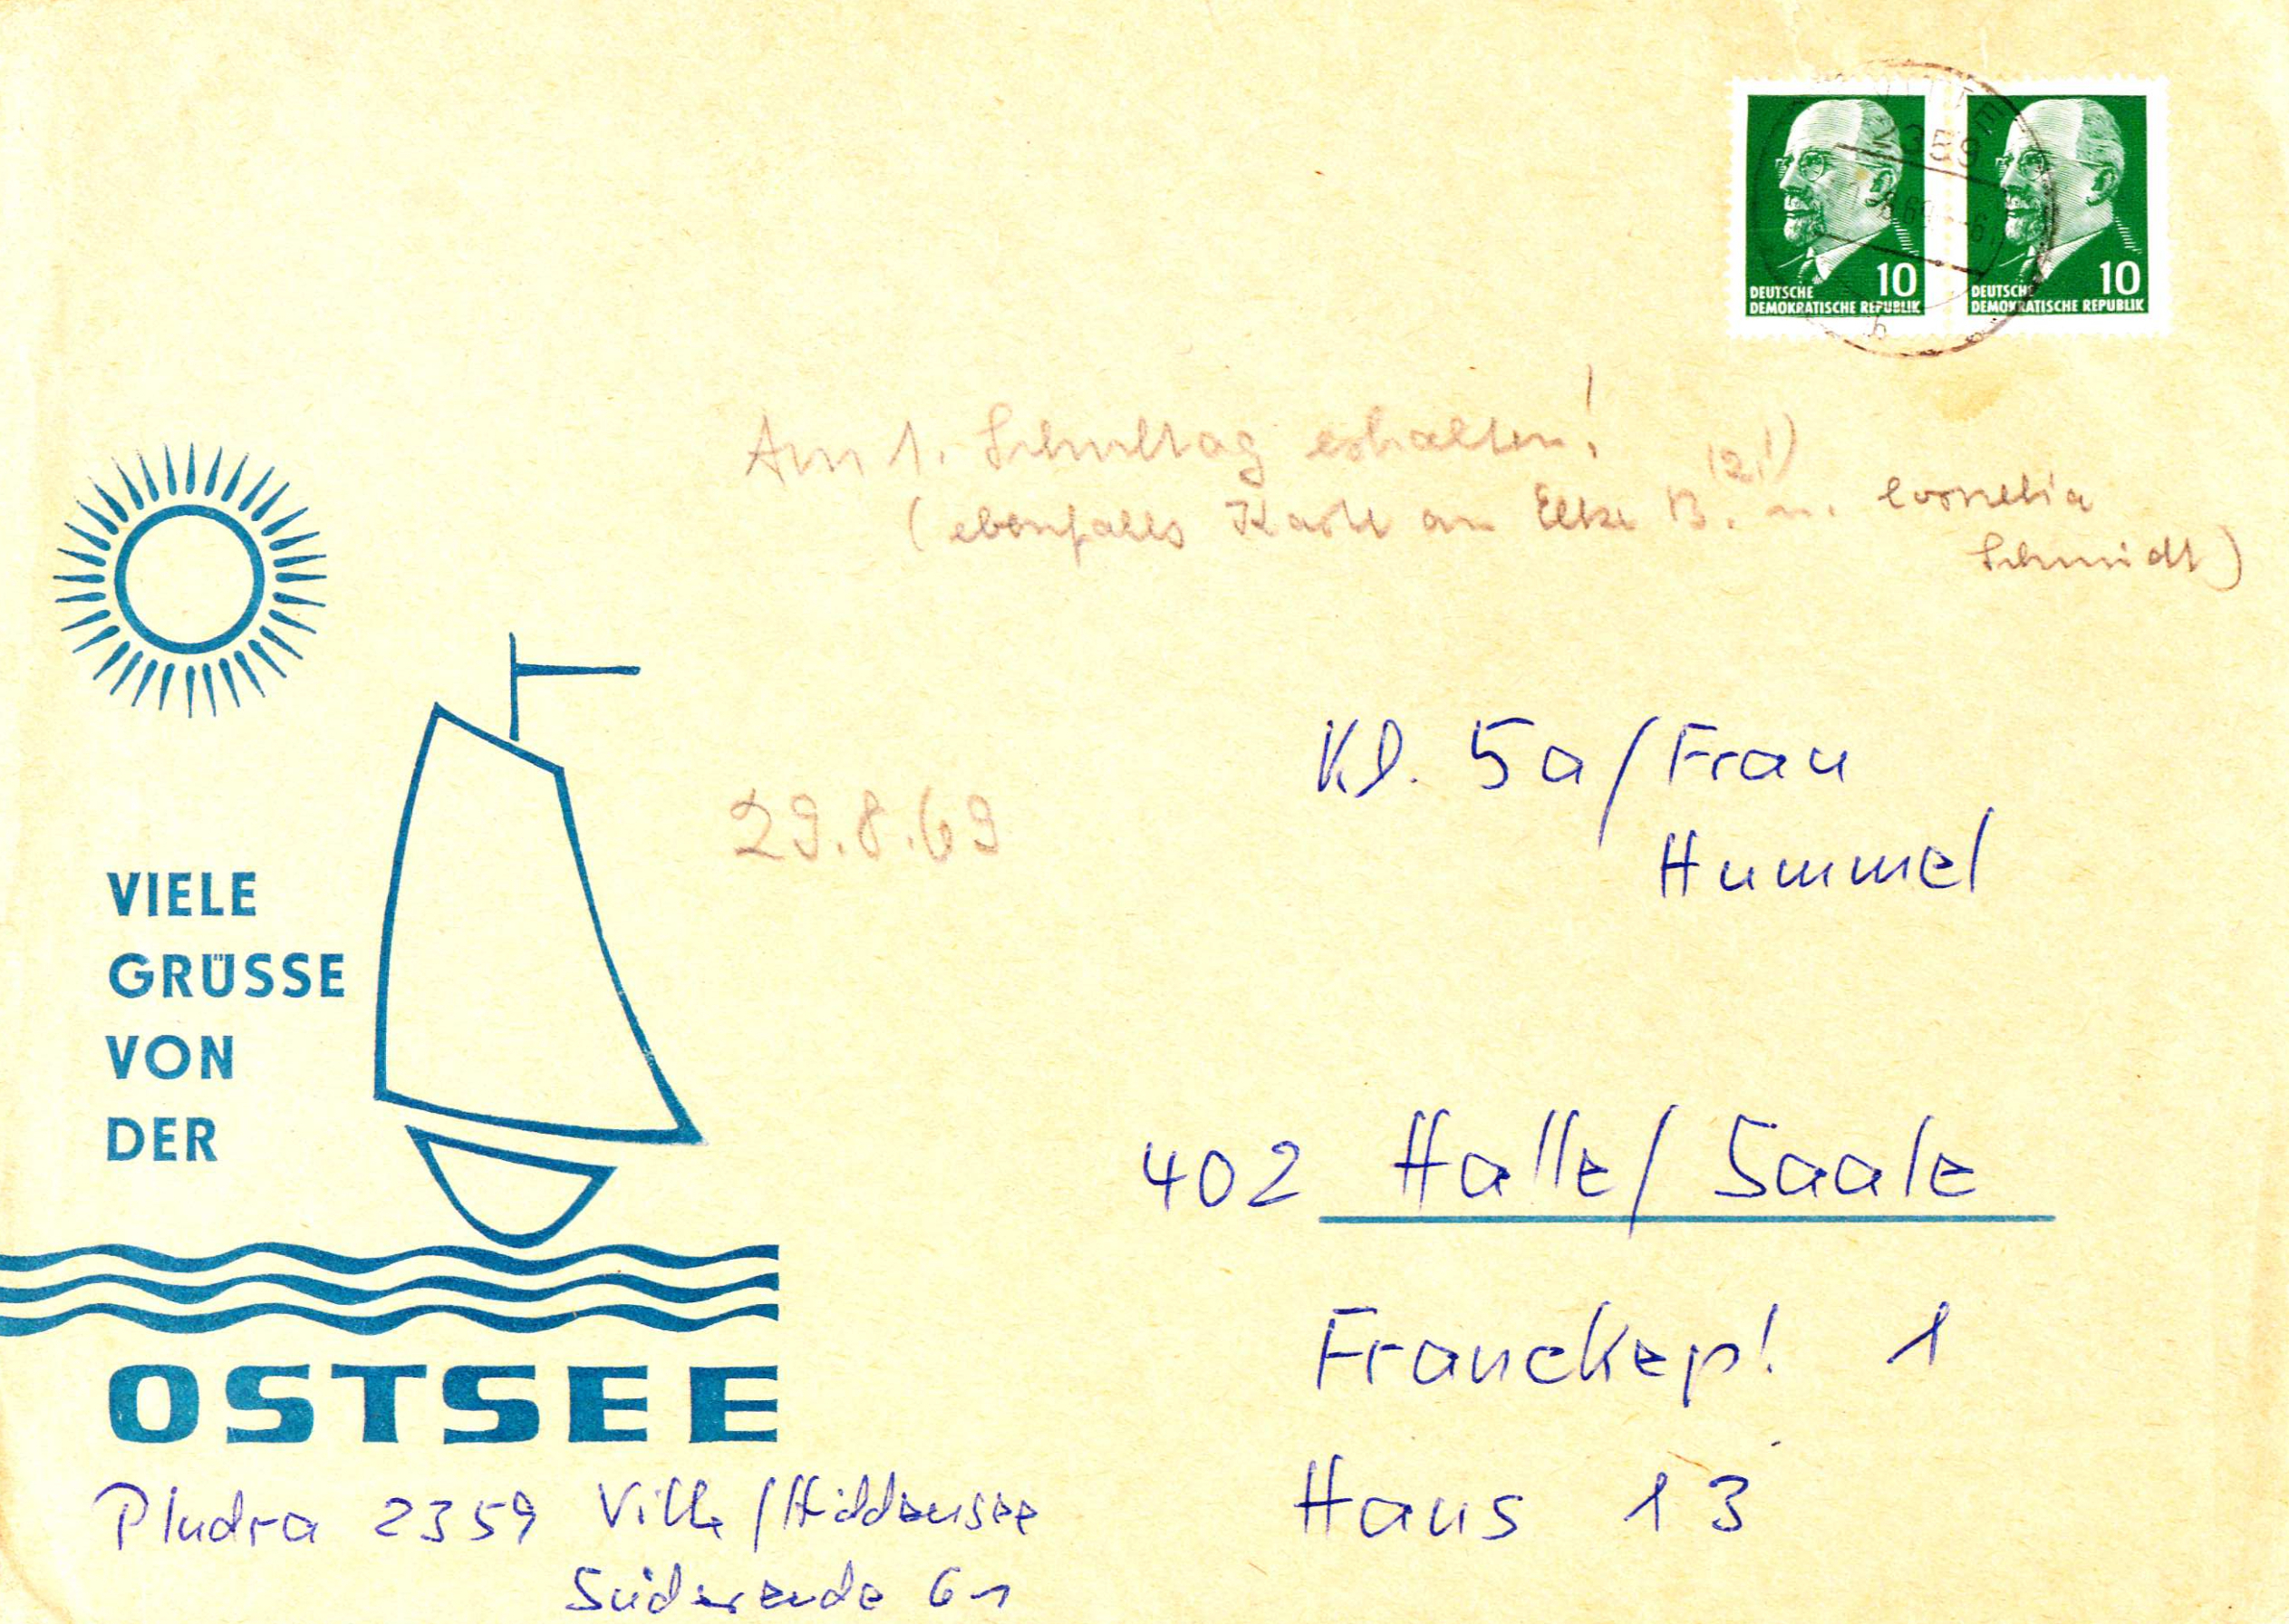 VITTE
2359
8.69
b
10
DEUTSCHE
DEMOKRATISCHE REPUBLIK
10
DEUTSCHE
DEMOKRATISCHE REPUBLIK
Am 1. Schultag erhalten!
(ebenfalls Karte an Elke B. (2.!) u. Cornelia
Schmidt)
29.8.69
Kl. 5a/Frau
Hummel
402 Halle/Saale
Franckepl. 1
Haus 13
VIELE
GRÜSSE
VON
DER
OSTSEE
Pludra 2359 Vitte/Hiddensee
Süderende 61